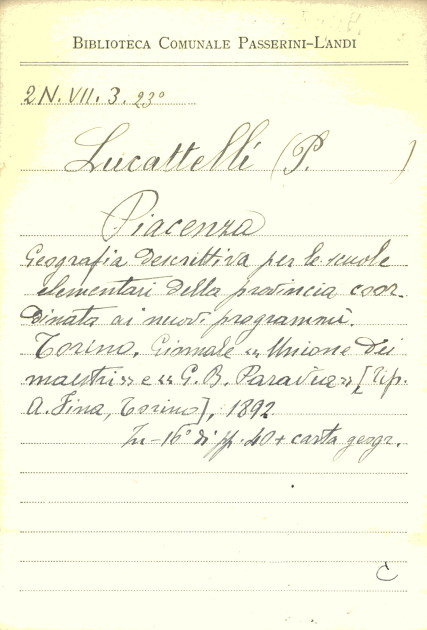 BIBLIOTECA COMUNALE PASSERINI-LANDI
2N. VII. 3. 23°
Lucattelli (P. )
Piacenza
Geografia descrittiva per le scuole
elementari della provincia coor-
dinata ai nuovi programmi.
Torino. Giornale «Unione dei
maestri» e «G. B. Paravia» [Tip.
A. Fina, Torino], 1892
In-16° di pp. 40 + carta geogr.
C